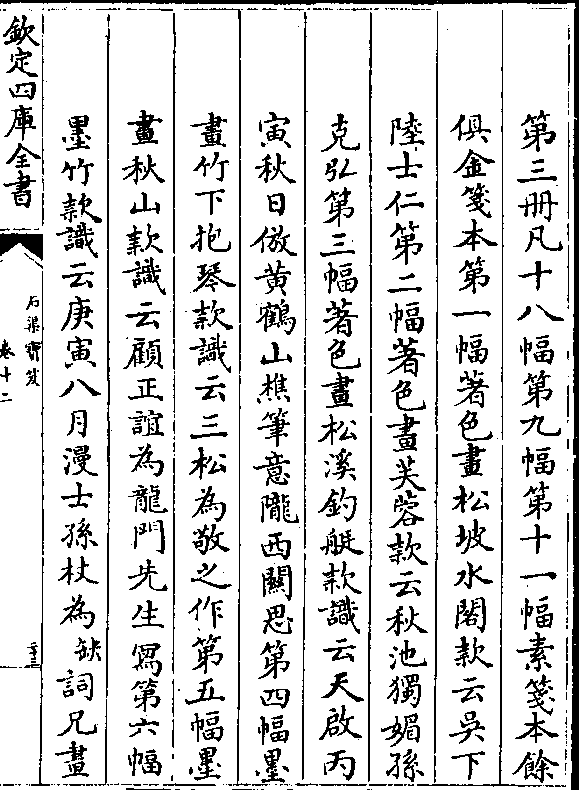 第三冊凡十八幅第九幅第十一幅素箋本餘
俱金箋本第一幅著色畫松坡水閣款云吳下
陸士仁第二幅著色畫芙蓉款云秋池獨媚孫
克弘第三幅著色畫松溪釣艇款識云天啟丙
寅秋日倣黃鶴山樵筆意隴西關思第四幅墨
畫竹下抱琴款識云三松為敬之作第五幅墨
畫秋山款識云顧正誼為龍門先生寫第六幅
墨竹款識云庚寅八月漫士孫杕為缺詞兄畫
欽定四庫全書
石渠寶笈
卷十二